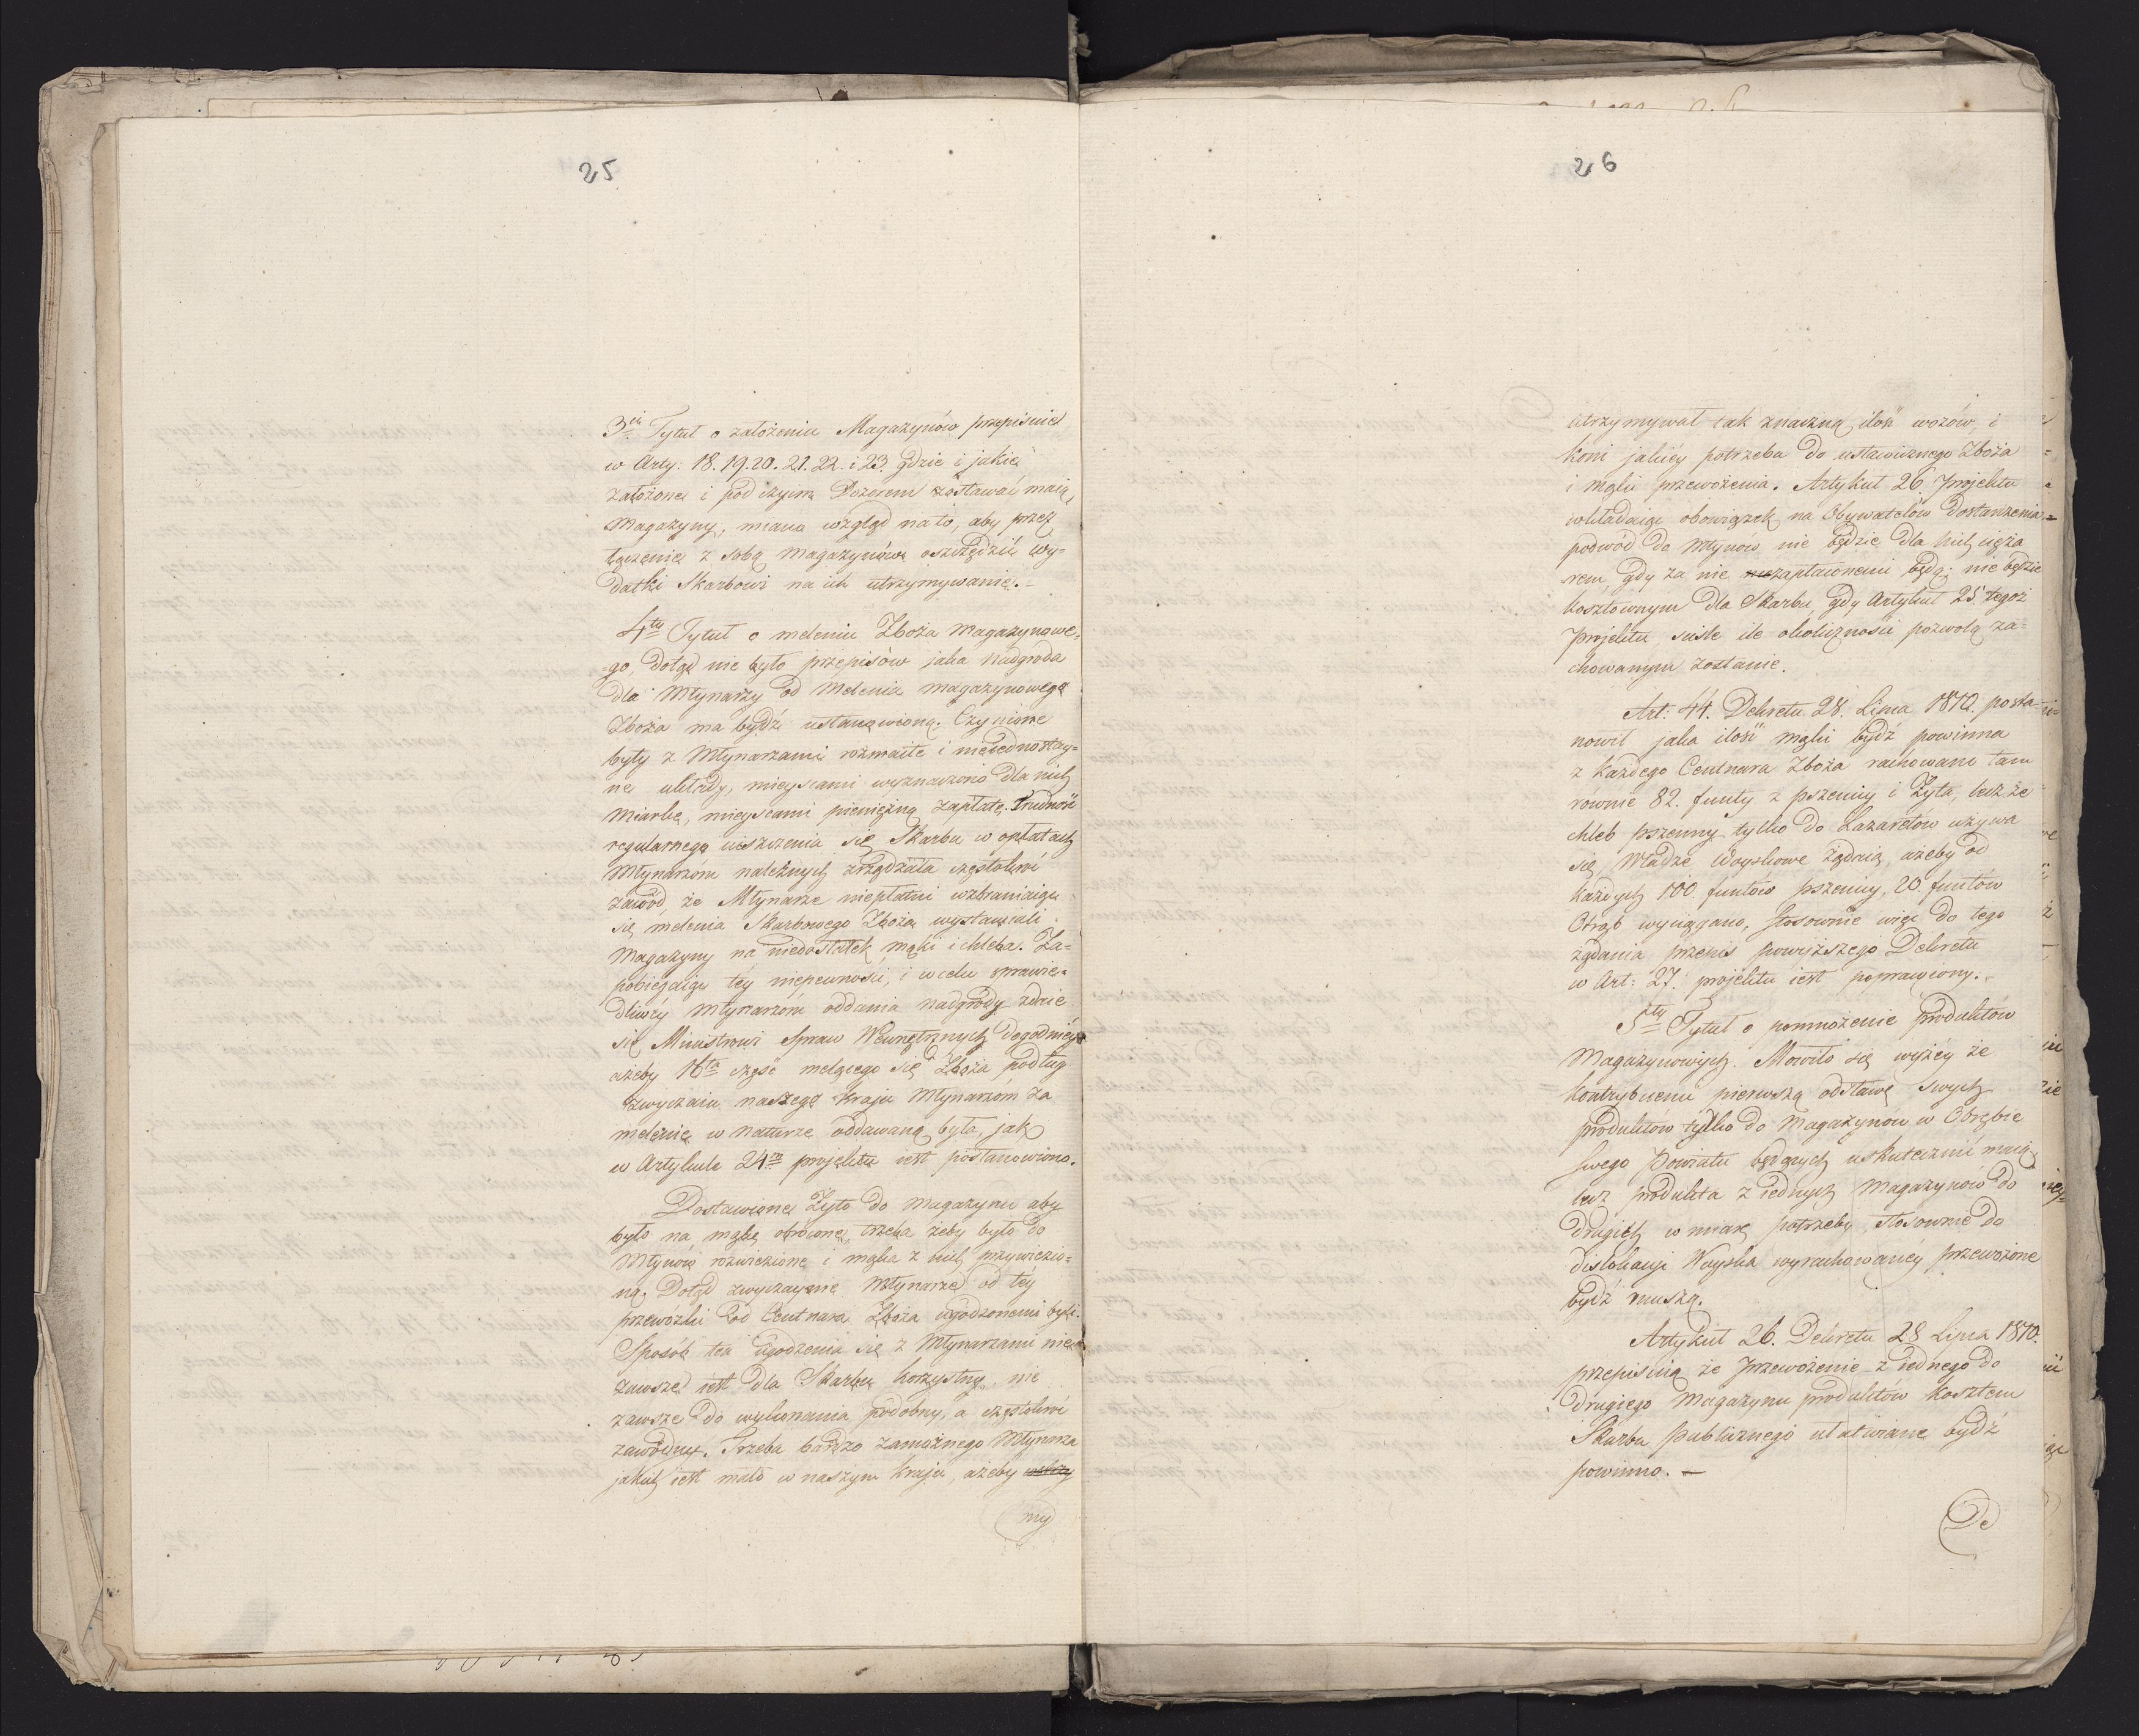 25
3ci Tytuł o założeniu Magazynów przepisuie
w Arty: 18. 19. 20. 21. 22. i 23. gdzie i jakie
założone i pod czyim Dozorem zostawać maią
Magazyny, miana wzgląd na to, aby przez
łączenie z sobą magazynów oszczędzić wy=
datki Skarbowi na ich utrzymywanie.-
4ty Tytuł o meleniu Zboża Magazynowe=
=go, dotąd nie było przepisów jaka nadgroda
dla Młynarzy od melenia magazynowego
Zboża ma bydź ustanowioną. Czynione
były z Młynarzami rozmaite i nieiednostay=
ne układy, mieyscami wyznaczono dla nich
Miarkę, mieyscami pieniężną zapłatę. Trudność
regularnego uiszczenia się Skarbu w opłatach
Młynarzom należnych zrządzała częstokroć
zawód że Młynarze niepłatni wzbraniaiąc
się melenia Skarbowego Zboża wystawiali
Magazyny na niedostatek mąki i chleba. Za=
pobiegaiąc téy niepewności, i w celu sprawie=
dliwéy Młynarzom oddania nadgrody zdaie
się Ministrowi Spraw Wewnętrznych dogodniéy
ażeby 16ta część melącego się Zboża podług
zwyczaiu naszego Kraju Młynarzom za
melenie w naturze oddawaną była, jak
w Artykule 24m projektu iest postanowiono.
Dostawione Żyto do Magazynu aby
było na mąkę obrócone, trzeba żeby było do
Młynów rozwiezione i mąka z nich przywiezio=
na. Dotąd zwyczaynie Młynarze od téy
przewózki od Centnara Zboża ugodzonemi byli.
Sposób ten ugodzenia się z Młynarzami nie
zawsze iest dla Skarbu korzystny, nie
zawsze do wykonania podobny, a częstokroć
zawodny. Trzeba bardzo zamożnego Młynarza
jakich iest mało w naszym kraju, ażeby
my
26
utrzymywał tak znaczną ilość wozów, i
koni jakiéy potrzeba do ustawicznego Zboża
i mąki przewożenia. Artykuł 26 Projektu
wkładaiąc obowiązek na Obywatelów dostarczenia
podwód do Młynów nie będzie dla nich cięża
rem, gdy za nie zapłaconemi będą; nie będzie
kosztownym dla Skarbu, gdy Artykuł 25 tegoż
Projektu ściśle ile okoliczności pozwolą za=
chowanym zostanie.
Art: 44. Dekretu 28. Lipca 1810. posta=
nowił jaka ilość mąki bydź powinna
z każdego Centnara Zboża rachowano tam
równie 82. funty z pszenicy i Żyta, lecz że
chleb pszenny tylko do Lazaretów używa
się Władze Woyskowe żądaią, ażeby od
każdych 100 funtów pszenicy, 20 funtów
Otrąb wyciągano, stosownie więc do tego
żądania przepis powyższego Dekretu
w Art: 27. projektu iest poprawiony.
5ty Tytuł o pomnożenie produktów
Magazynowych. Mowiło się wyżéy że
kontrybuenci pierwszą odstawę swych
produktów tylko do Magazynów w Obrębie
swego Powiatu będących uskutecznić maią
lecz produkta z iednych Magazynów do
drugich w miarę potrzeby, stosownie do
dislokacyi Woyska wyrachowanéy przewożone
bydź muszą.
Artykuł 26. Dekretu 28 Lipca 1810.
przepisuią że przewożenie z iednego do
drugiego Magazynu produktów kosztem
Skarbu publicznego ułatwiane bydź
powinno. —
De